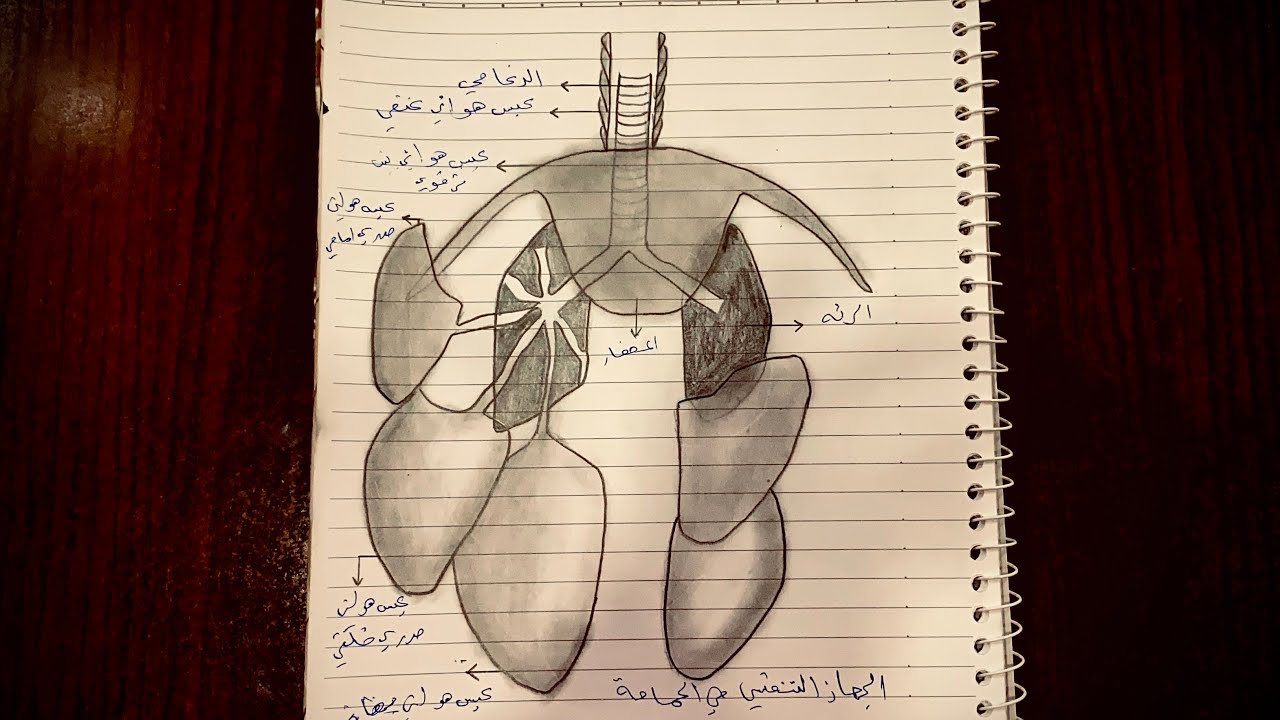 الرغامي
عيس هوائي عنقي
عيس هوائي بين
ترقوي
عيس هوائي
صدري امامي
الرئه
اعصفار
عيس هوائي
صدري خلفي
عيس هوائي
الجهاز التنفسي في الحمامة